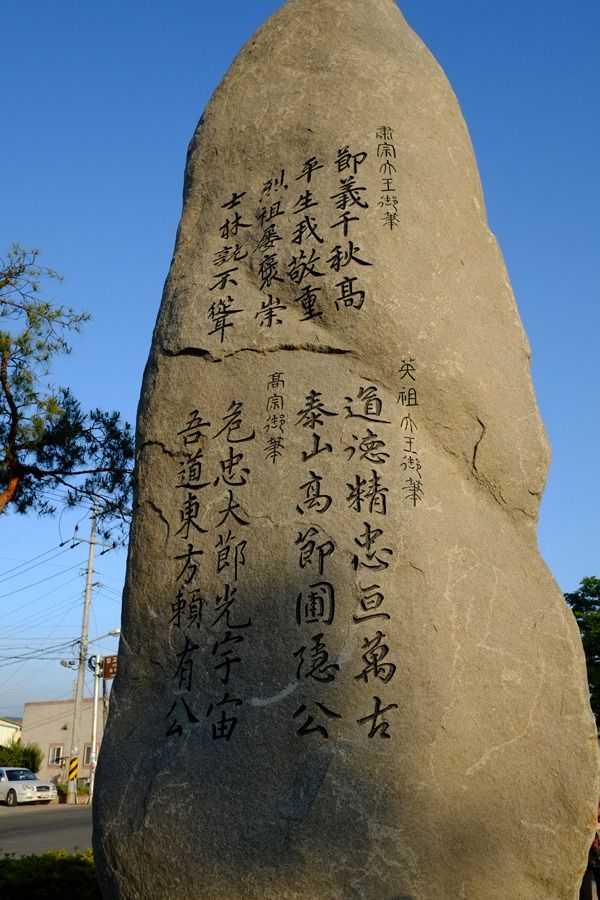 肅宗大王御筆
節義千秋高
平生我敬重
烈祖屡褒崇
士林孰不聳
英祖大王御筆
道德精忠亘萬古
泰山高節圃隱公
高宗御筆
危忠大節光宇宙
吾道東方賴有公